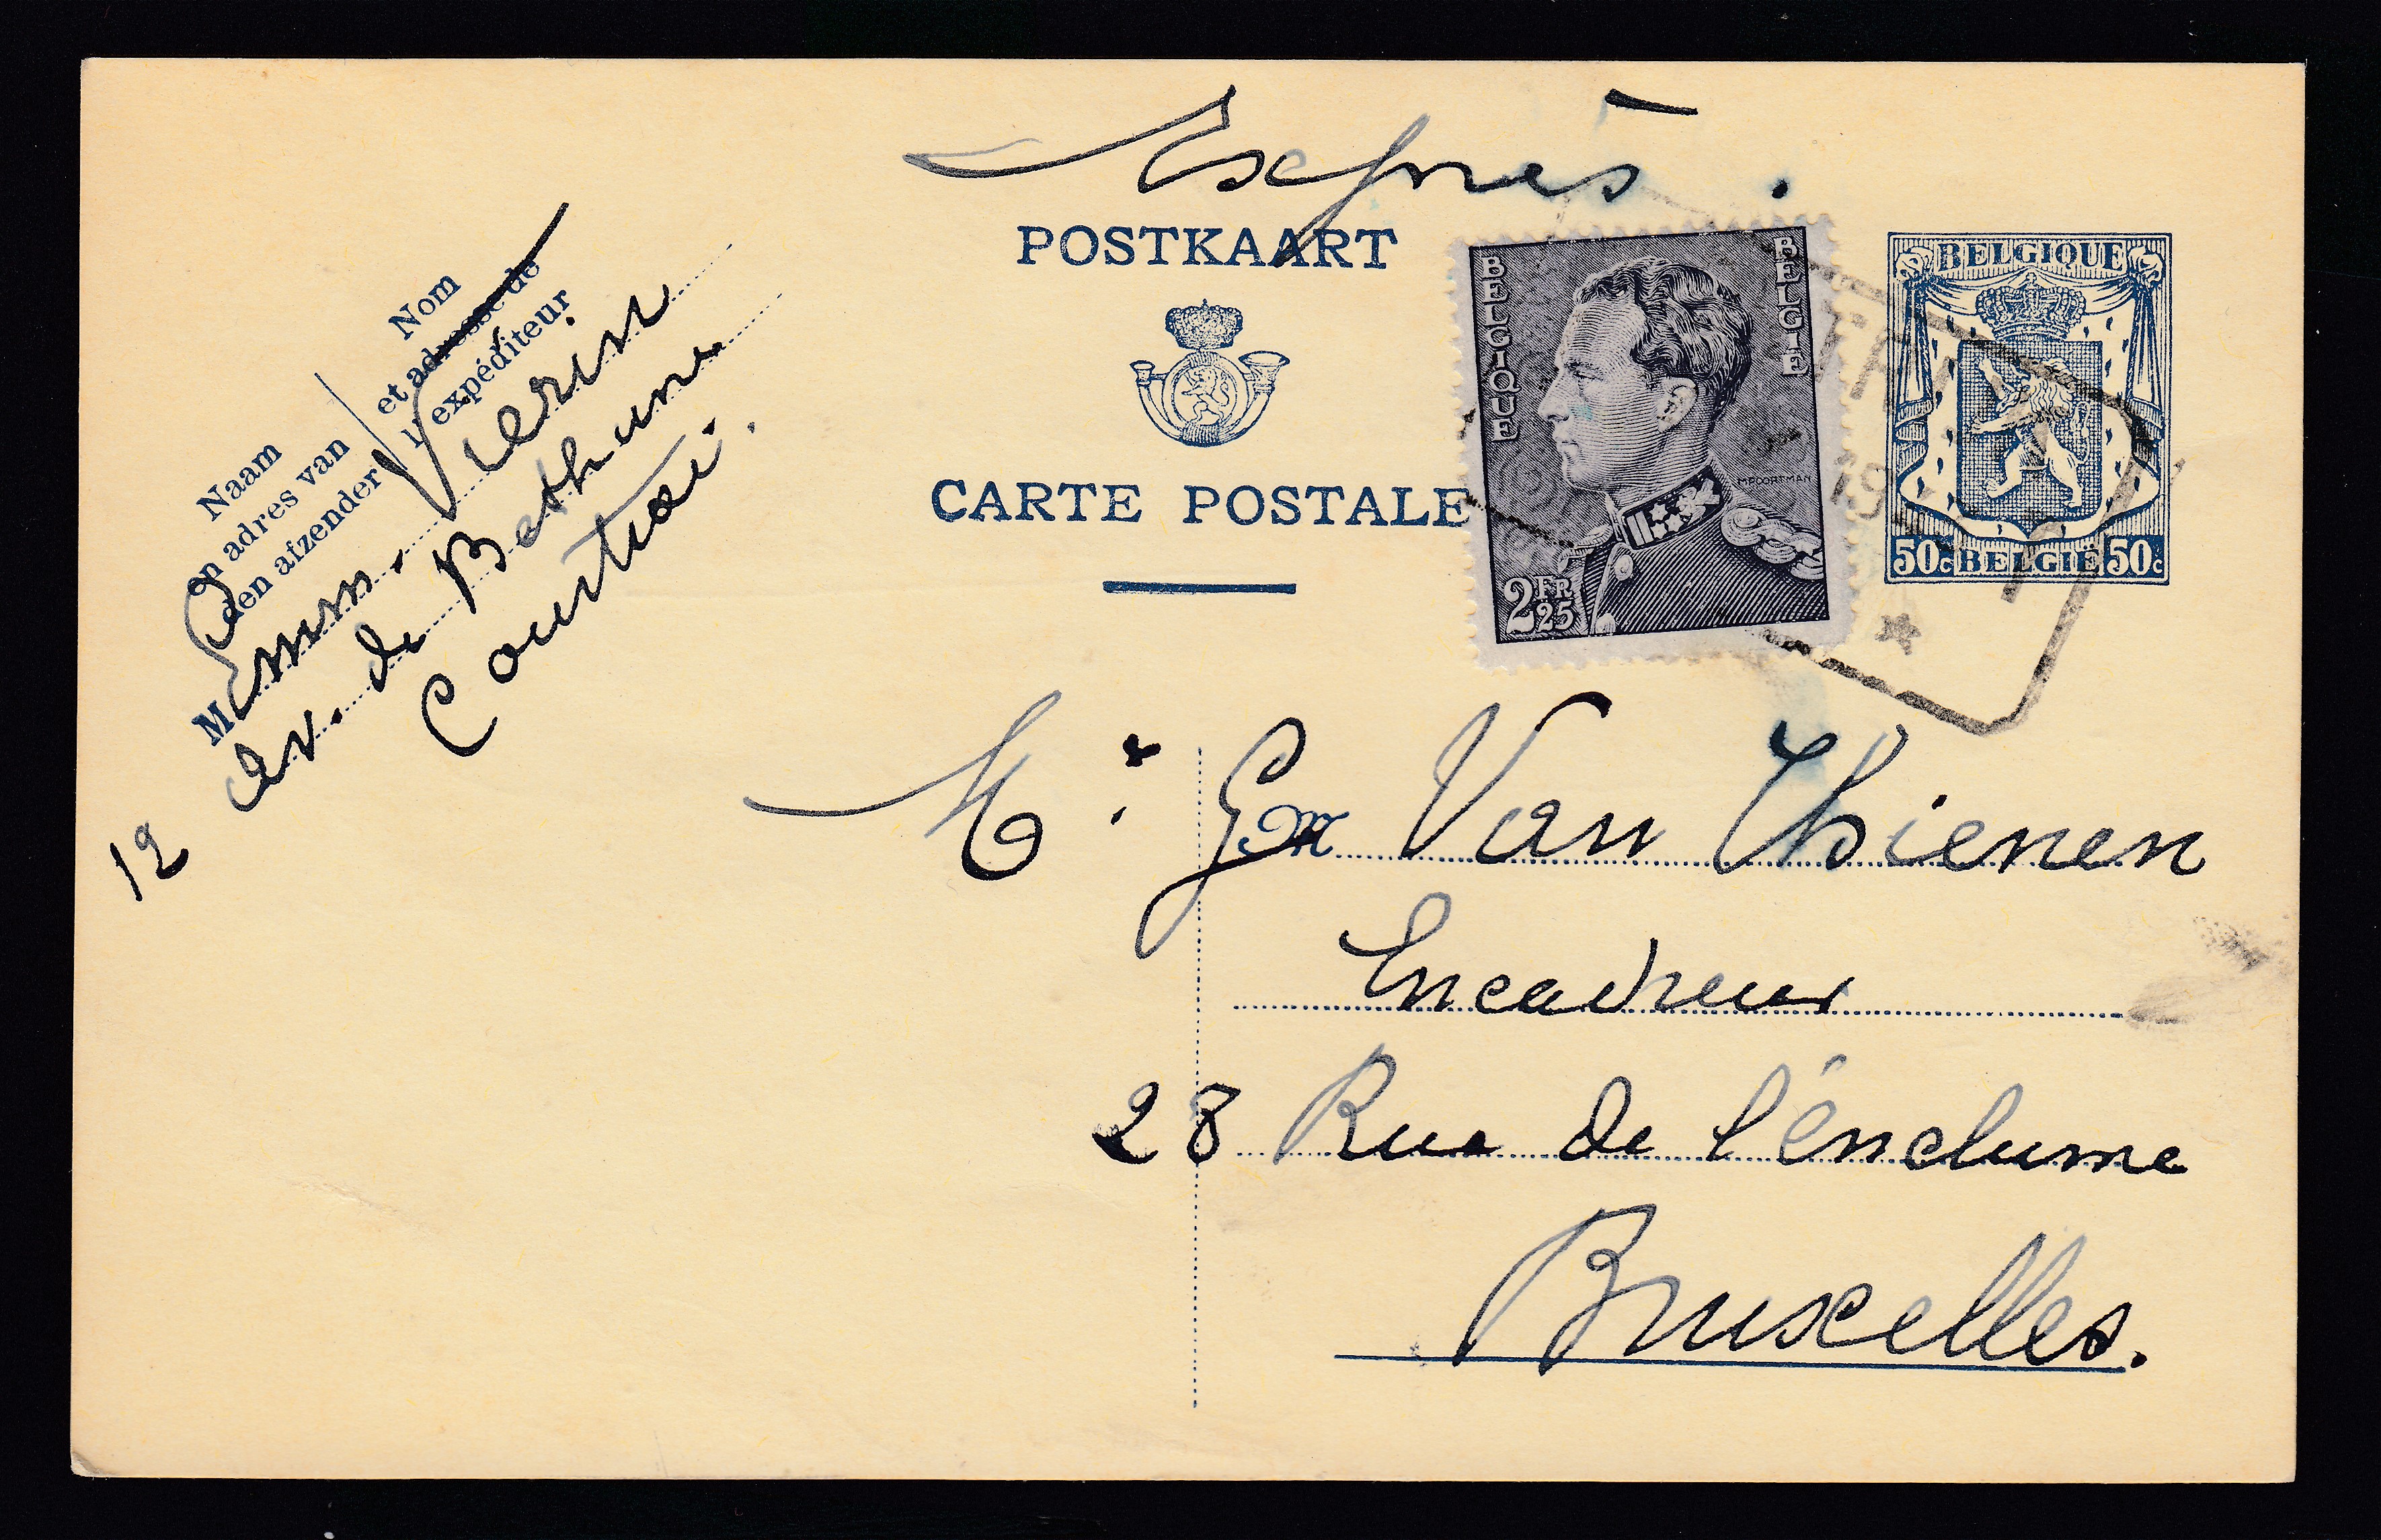 Exprès.
POSTKAART
CARTE POSTALE
BELGIQUE
BELGIË
MPOORTMAN
2 FR 25
BELGIQUE
50c BELGIË 50c
Nom
et adresse de
l'expéditeur
Naam
en adres van
den afzender
M Emm. Vierin
12 av. de Bethune
Courtrai.
Mr: G. M Van Thienen
Encadreur
28 Rue de l'énclume
Bruxelles.